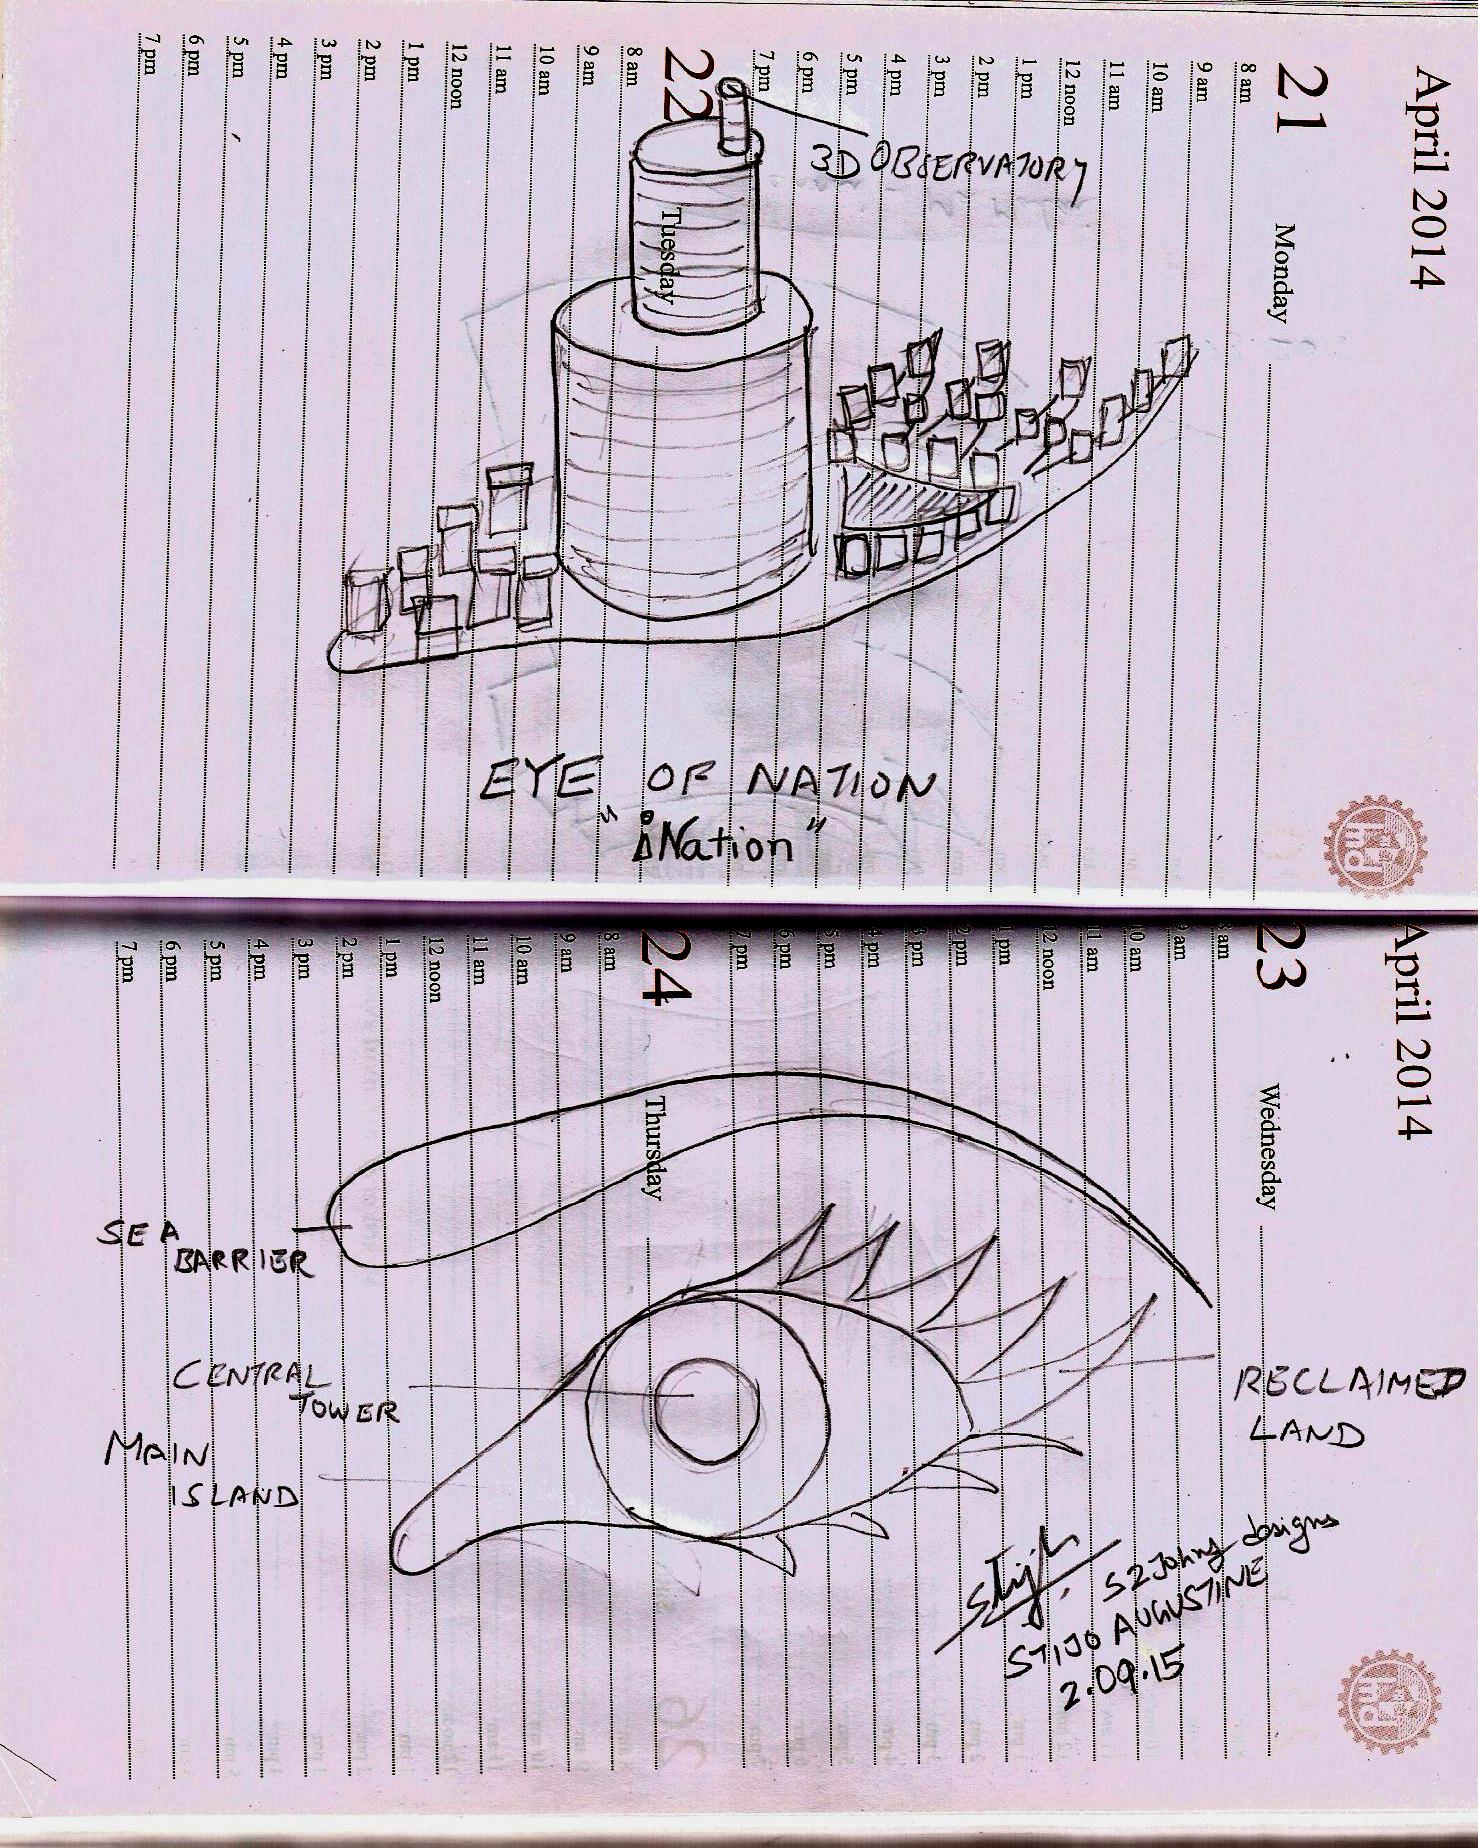 April 2014
21
Monday
8 am
9 am
10 am
11 am
12 noon
1 pm
2 pm
3 pm
4 pm
5 pm
6 pm
7 pm
22
Tuesday
8 am
9 am
10 am
11 am
12 noon
1 pm
2 pm
3 pm
4 pm
5 pm
6 pm
7 pm
3D OBSERVATORY
EYE OF NATION
"iNation"
April 2014
23
Wednesday
8 am
9 am
10 am
11 am
12 noon
1 pm
2 pm
3 pm
4 pm
5 pm
6 pm
7 pm
24
Thursday
8 am
9 am
10 am
11 am
12 noon
1 pm
2 pm
3 pm
4 pm
5 pm
6 pm
7 pm
SEA
BARRIER
CENTRAL
TOWER
MAIN
ISLAND
RECLAIMED
LAND
S2Johns designs
STIJO AUGUSTINE
2.09.15